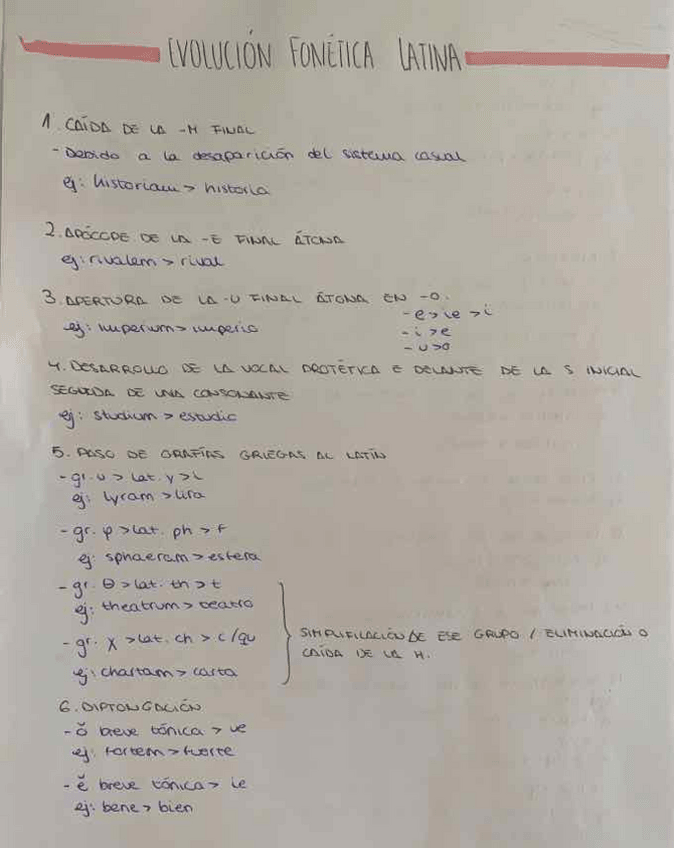 EVOLUCIÓN FONÉTICA LATINA
1. CAÍDA DE LA -M FINAL
- Debido a la desaparición del sistema casual
ej: historiam > historia
2. APÓCOPE DE LA -E FINAL ÁTONA
ej: rivalem > rival
3. APERTURA DE LA -U FINAL ÁTONA EN -O.
- e > ie > i
ej: imperium > imperio
- i > e
- u > o
4. DESARROLLO DE LA VOCAL PROTÉTICA E DELANTE DE LA S INICIAL
SEGUIDA DE UNA CONSONANTE
ej: studium > estudio
5. PASO DE GRAFÍAS GRIEGAS AL LATÍN
- gr. u > lat. y > i
ej: lyram > lira
- gr. φ > lat. ph > f
ej: sphaeram > esfera
- gr. θ > lat. th > t
ej: theatrum > teatro
- gr. χ > lat. ch > c/qu
ej: chartam > carta
SIMPLIFILACIÓN DE ESE GRUPO / ELIMINACIÓN O
CAÍDA DE LA H.
6. DIPTONGACIÓN
- ŏ breve tónica > ue
ej: fortem > fuerte
- ĕ breve tónica > ie
ej: bene > bien